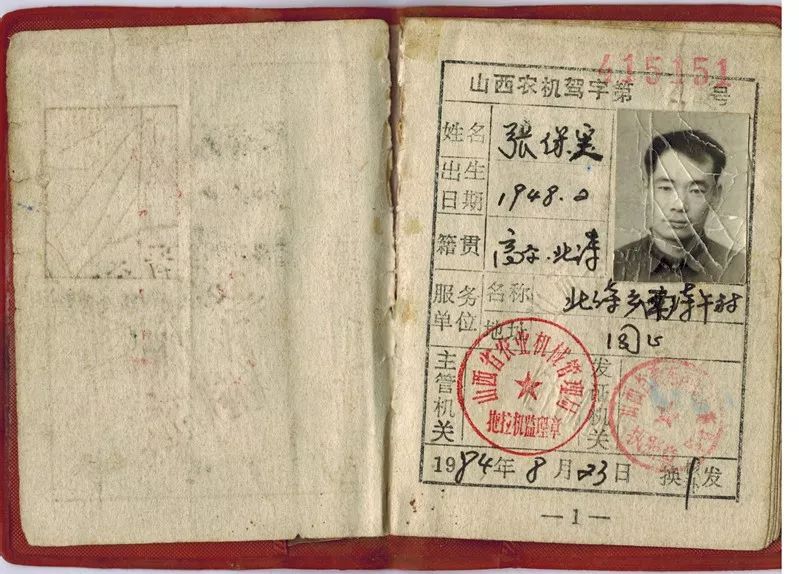 415151
山西农机驾字第 号
姓名 张保宝
出生日期 1948.2
籍贯 高平.北诗
服务单位 名称 北诗乡南诗午村
地址 同上
主管机关
山西省农业机械管理局
拖拉机监理章
发证机关
1984年8月23日 换发
—1—